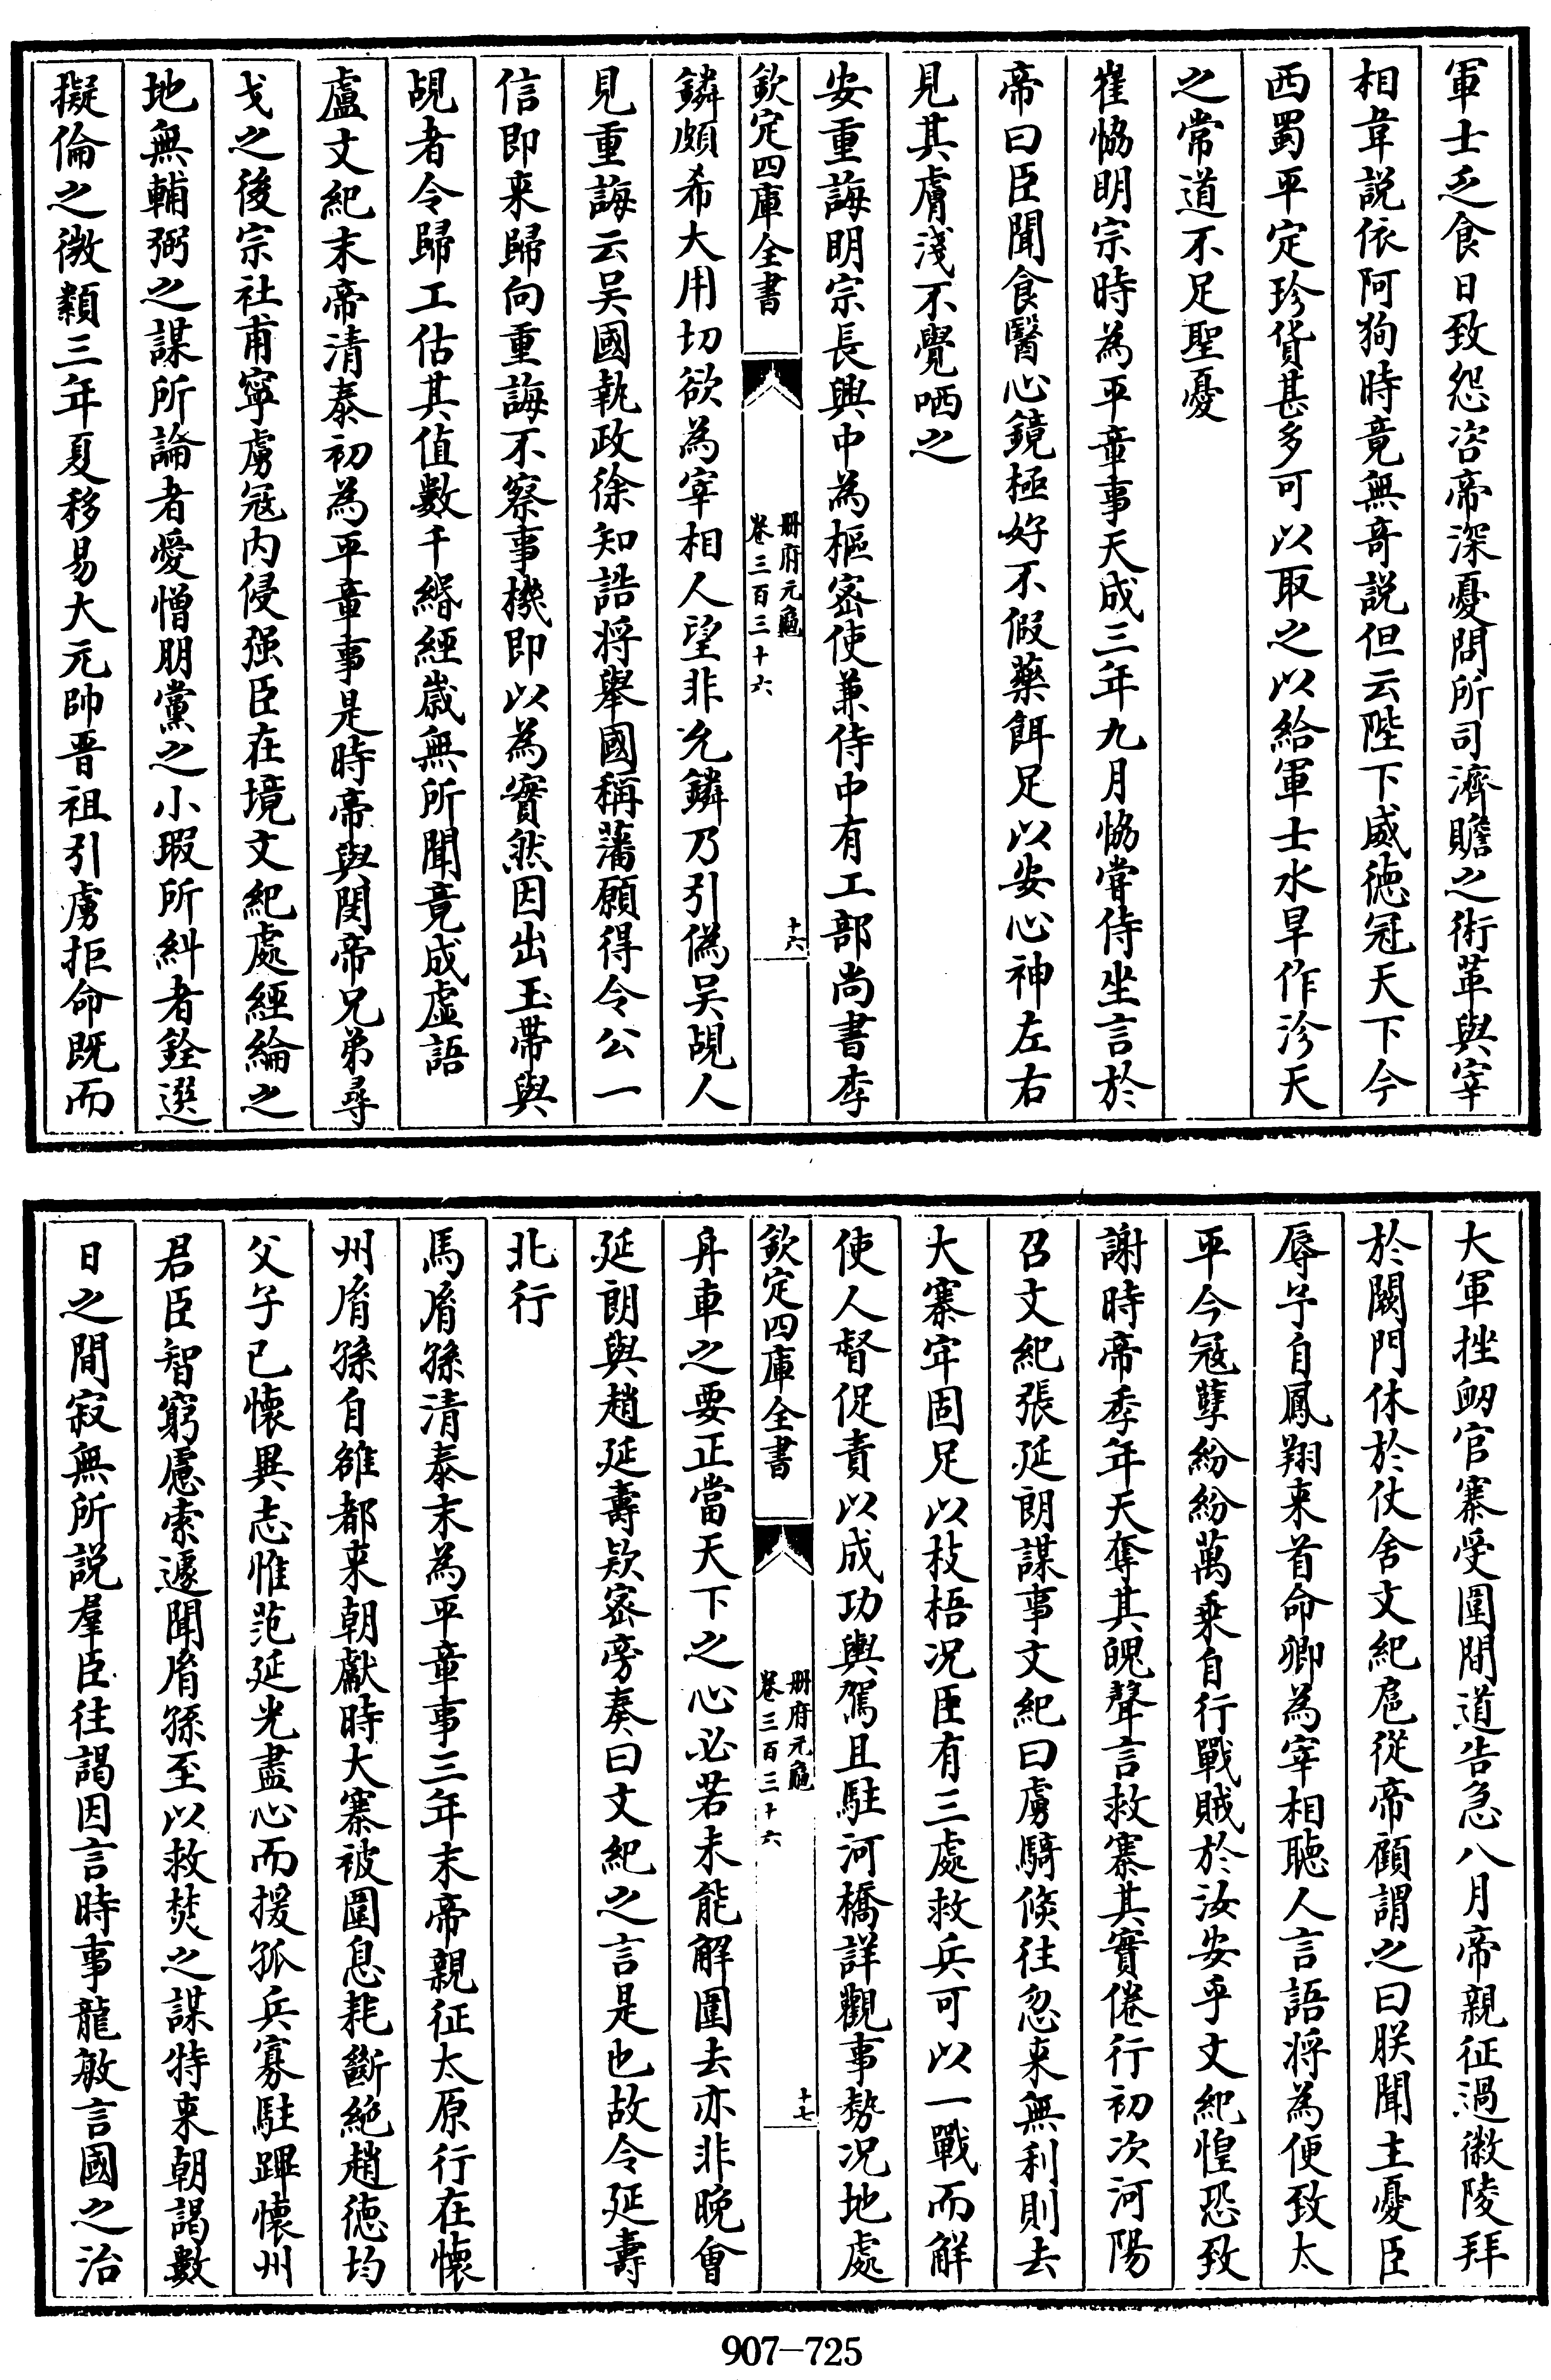 軍士乏食日致怨咨帝深憂問所司濟贍之術革與宰
相韋說依阿狥時竟無竒說但云陛下威徳冠天下今
西蜀平定珍貨甚多可以取之以給軍士水旱作沴天
之常道不足聖憂
崔恊明宗時為平章事天成三年九月恊嘗侍坐言於
帝曰臣聞食醫心鏡極好不假藥餌足以安心神左右
見其膚淺不覺哂之
安重誨明宗長興中為樞宻使兼侍中有工部尚書李
欽定四庫全書
冊府元龜
卷三百三十六
十六
鏻頗希大用切欲為宰相人望非允鏻乃引偽吴覘人
見重誨云吴國執政徐知誥将舉國稱藩願得令公一
信即来歸向重誨不察事機即以為實然因出玉帶與
覘者令歸工估其值數千緡經嵗無所聞竟成虚語
盧文紀末帝清泰初為平章事是時帝與閔帝兄弟尋
戈之後宗社甫寧虜冦内侵强臣在境文紀處經綸之
地無輔弼之謀所論者愛憎朋黨之小瑕所糾者銓選
擬倫之微纇三年夏移易大元帥晋祖引虜拒命既而
大軍挫衂官寨受圍間道告急八月帝親征過徽陵拜
於闕門休於仗舍文紀扈從帝顧謂之曰朕聞主憂臣
辱予自鳳翔来首命卿為宰相聽人言語将為便致太
平今冦孽紛紛萬乘自行戰賊於汝安乎文紀惶恐致
謝時帝季年天奪其魄聲言救寨其實倦行初次河陽
召文紀張延朗謀事文紀曰虜騎倐往忽来無利則去
大寨牢固足以枝梧况臣有三處救兵可以一戰而解
使人督促責以成功輿駕且駐河橋詳觀事勢况地處
欽定四庫全書
冊府元龜
卷三百三十六
十七
舟車之要正當天下之心必若未能解圍去亦非晚會
延朗與趙延壽欵宻旁奏曰文紀之言是也故令延壽
北行
馬脩孫清泰末為平章事三年末帝親征太原行在懷
州脩孫自雒都来朝獻時大寨被圍息耗斷絶趙徳均
父子已懷異志惟范延光盡心而援孤兵寡駐蹕懷州
君臣智窮慮索遽聞脩孫至以救焚之謀特来朝謁數
日之間寂無所説羣臣往謁因言時事龍敏言國之治
907—725